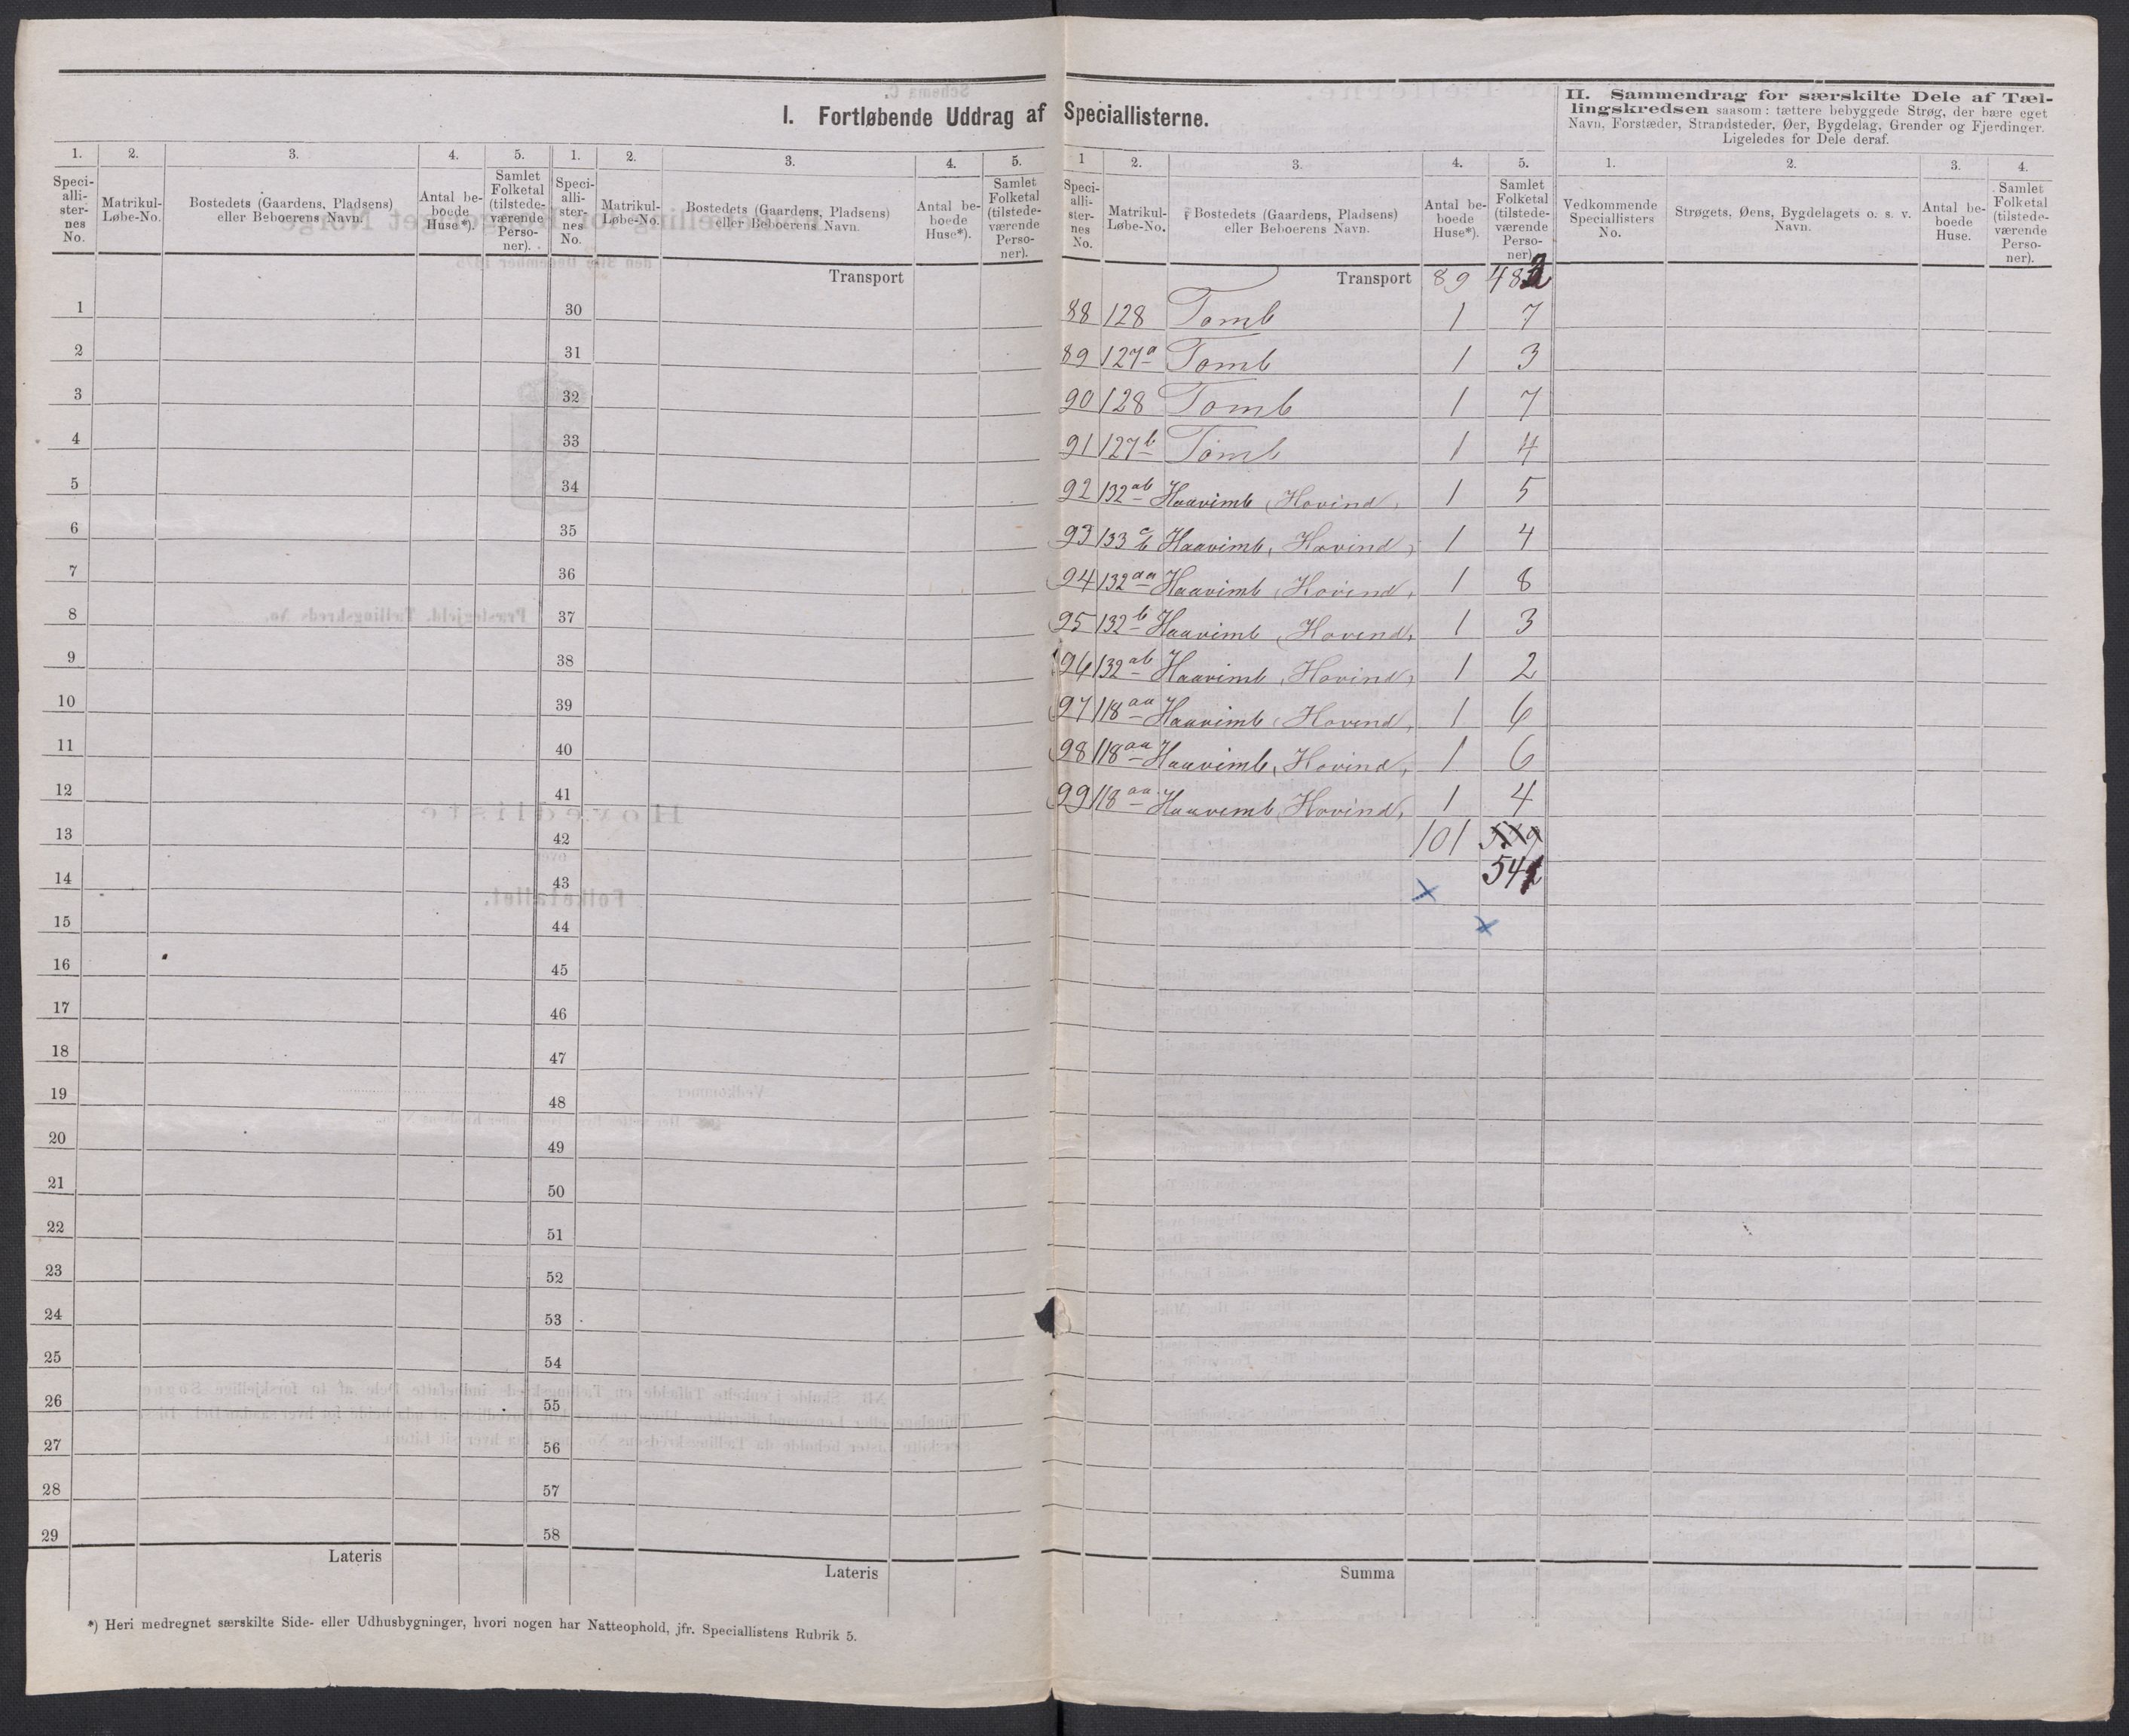 I. Fortløbende Uddrag af Speciallisterne.
II. Sammendrag for særskilte Dele af Tæl-
lingskredsen saasom: tættere bebyggede Strøg, der bære eget
Navn, Forstæder, Strandsteder, Øer, Bygdelag, Grender og Fjerdinger.
Ligeledes for Dele deraf.
1. 2. 3. 4. 5. 1. 2. 3. 4. 5.
Speci-
alli-
ster-
nes
No.
Matrikul-
Løbe-No.
Bostedets (Gaardens, Pladsens)
eller Beboerens Navn.
Antal be-
boede
Huse*).
Samlet
Folketal
(tilstede-
værende
Perso-
ner).
Speci-
alli-
ster-
nes
No.
Matrikul-
Løbe-No.
Bostedets (Gaardens, Pladsens)
eller Beboerens Navn.
Antal be-
boede
Huse*).
Samlet
Folketal
(tilstede-
værende
Perso-
ner).
Transport
1 30
2 31
3 32
4 33
5 34
6 35
7 36
8 37
9 38
10 39
11 40
12 41
13 42
14 43
15 44
16 45
17 46
18 47
19 48
20 49
21 50
22 51
23 52
24 53
25 54
26 55
27 56
28 57
29 58
Lateris Lateris
*) Heri medregnet særskilte Side- eller Udhusbygninger, hvori nogen har Natteophold, jfr. Speciallistens Rubrik 5.
1 2. 3. 4. 5.
Speci-
alli-
ster-
nes
No.
Matrikul-
Løbe-No.
Bostedets (Gaardens, Pladsens)
eller Beboerens Navn.
Antal be-
boede
Huse*).
Samlet
Folketal
(tilstede-
værende
Perso-
ner).
1. 2. 3. 4.
Vedkommende
Speciallisters
No.
Strøgets, Øens, Bygdelagets o. s. v.
Navn.
Antal be-
boede
Huse.
Samlet
Folketal
(tilstede-
værende
Perso-
ner).
Transport 89
88 128 Tomb 1 7
89 127a Tomb 1 3
90 128 Tomb 1 7
91 127b Tomb 1 4
92 132ab Haavimb, Hovind, 1 5
93 133 Haavimb, Hovind, 1 4
94 132aa Haavimb, Hovind, 1 8
95 132b Haavimb, Hovend, 1 3
96 132ab Haavimb, Hovind, 1 2
97 118aa Haavimb, Hovend, 1 6
98 118aa Haavimb, Hovind, 1 6
99 118aa Haavemb, Hovind, 1 4
101
x
x
Summa